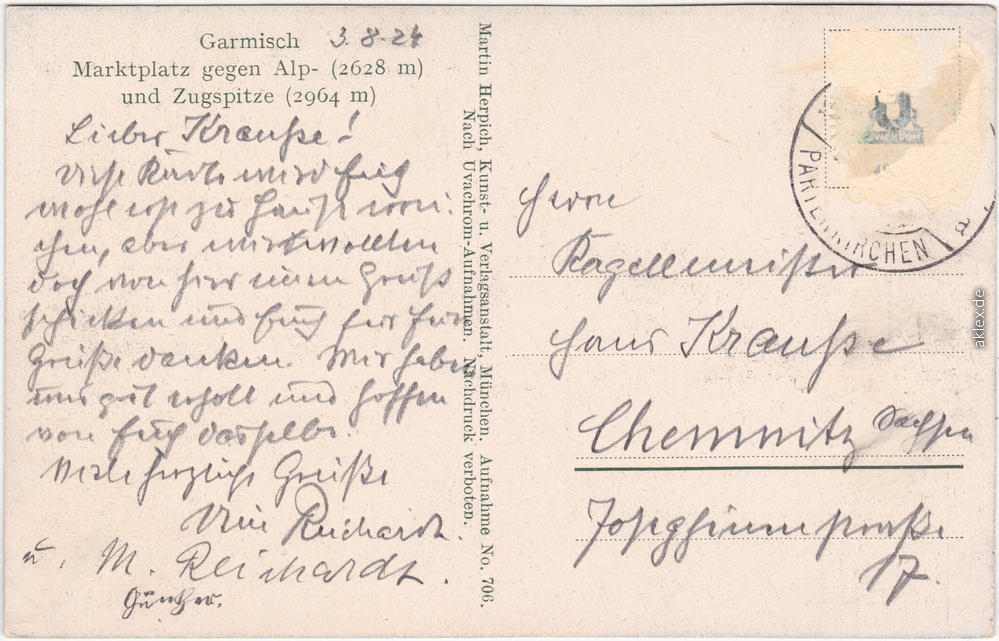 Garmisch 3.8.24
Marktplatz gegen Alp- (2628 m)
und Zugspitze (2964 m)
Lieber Krauße!
Diese Karte wird Euch
wohl erst zu Hause errei-
chen, aber wir wollten
doch von hier einen Gruß
schicken und Euch für Eure
Grüße danken. Wir haben
uns gut erholt und hoffen
von Euch dasselbe.
Viele herzliche Grüße
Dein Reichardt.
u. M. Reichardt.
Günther.
Martin Herpich, Kunst- u. Verlagsanstalt, München. Aufnahme No. 706.
Nach Uvachrom-Aufnahmen. Nachdruck verboten.
UVACHROM
PARTENKIRCHEN
a
Herrn
Kapellmeister
Hans Krauße
Chemnitz Sachsen
Josephinenstraße
17.
aklex.de